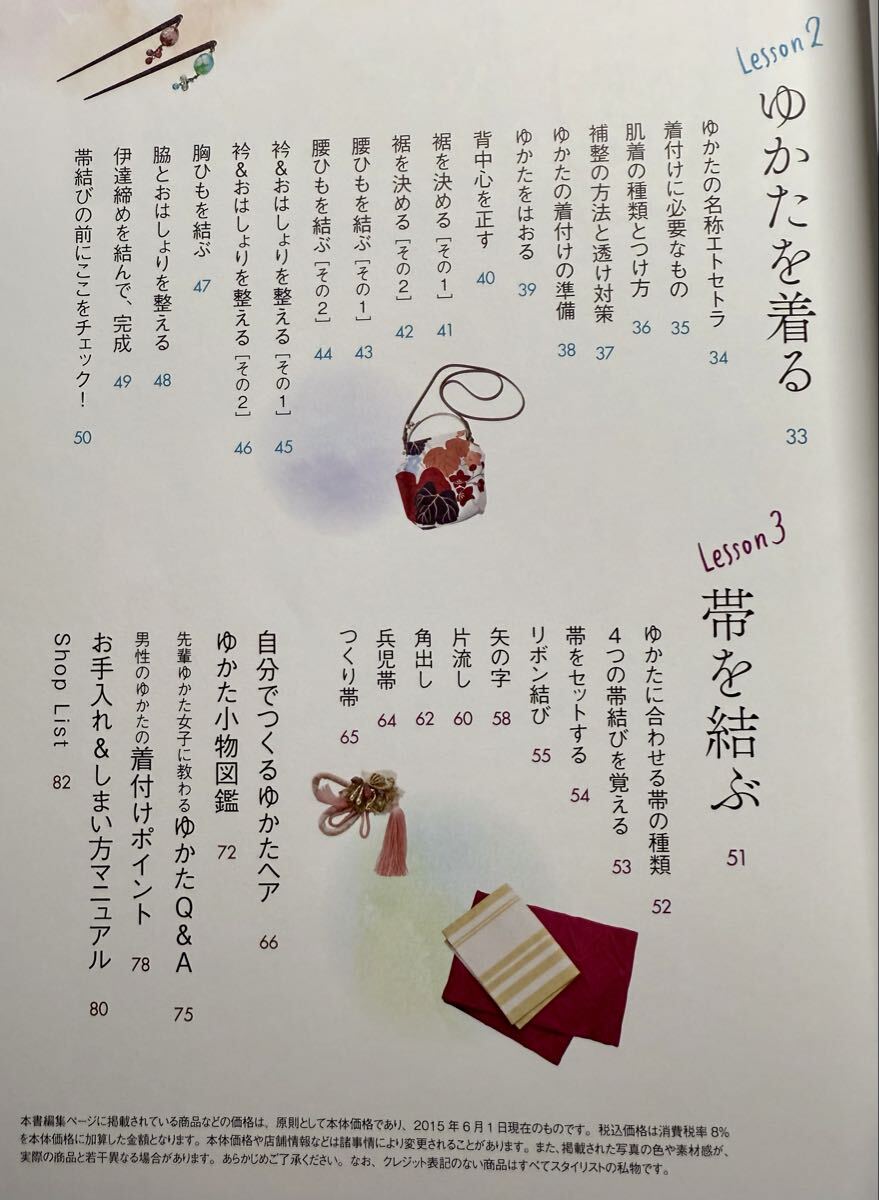 Lesson2
ゆかたを着る 33
ゆかたの名称エトセトラ 34
着付けに必要なもの 35
肌着の種類とつけ方 36
補整の方法と透け対策 37
ゆかたの着付けの準備 38
ゆかたをはおる 39
背中心を正す 40
裾を決める［その1］ 41
裾を決める［その2］ 42
腰ひもを結ぶ［その1］ 43
腰ひもを結ぶ［その2］ 44
衿&おはしょりを整える［その1］ 45
衿&おはしょりを整える［その2］ 46
胸ひもを結ぶ 47
脇とおはしょりを整える 48
伊達締めを結んで、完成 49
帯結びの前にここをチェック！ 50
Lesson3
帯を結ぶ 51
ゆかたに合わせる帯の種類 52
4つの帯結びを覚える 53
帯をセットする 54
リボン結び 55
矢の字 58
片流し 60
角出し 62
兵児帯 64
つくり帯 65
自分でつくるゆかたヘア 66
ゆかた小物図鑑 72
先輩ゆかた女子に教わるゆかたQ&A 75
男性のゆかたの着付けポイント 78
お手入れ&しまい方マニュアル 80
Shop List 82
本書編集ページに掲載されている商品などの価格は、原則として本体価格であり、2015年6月1日現在のものです。税込価格は消費税率8%
を本体価格に加算した金額となります。本体価格や店舗情報などは諸事情により変更されることがあります。また、掲載された写真の色や素材感が、
実際の商品と若干異なる場合があります。あらかじめご了承ください。なお、クレジット表記のない商品はすべてスタイリストの私物です。